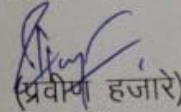 (प्रवीण हजारे)